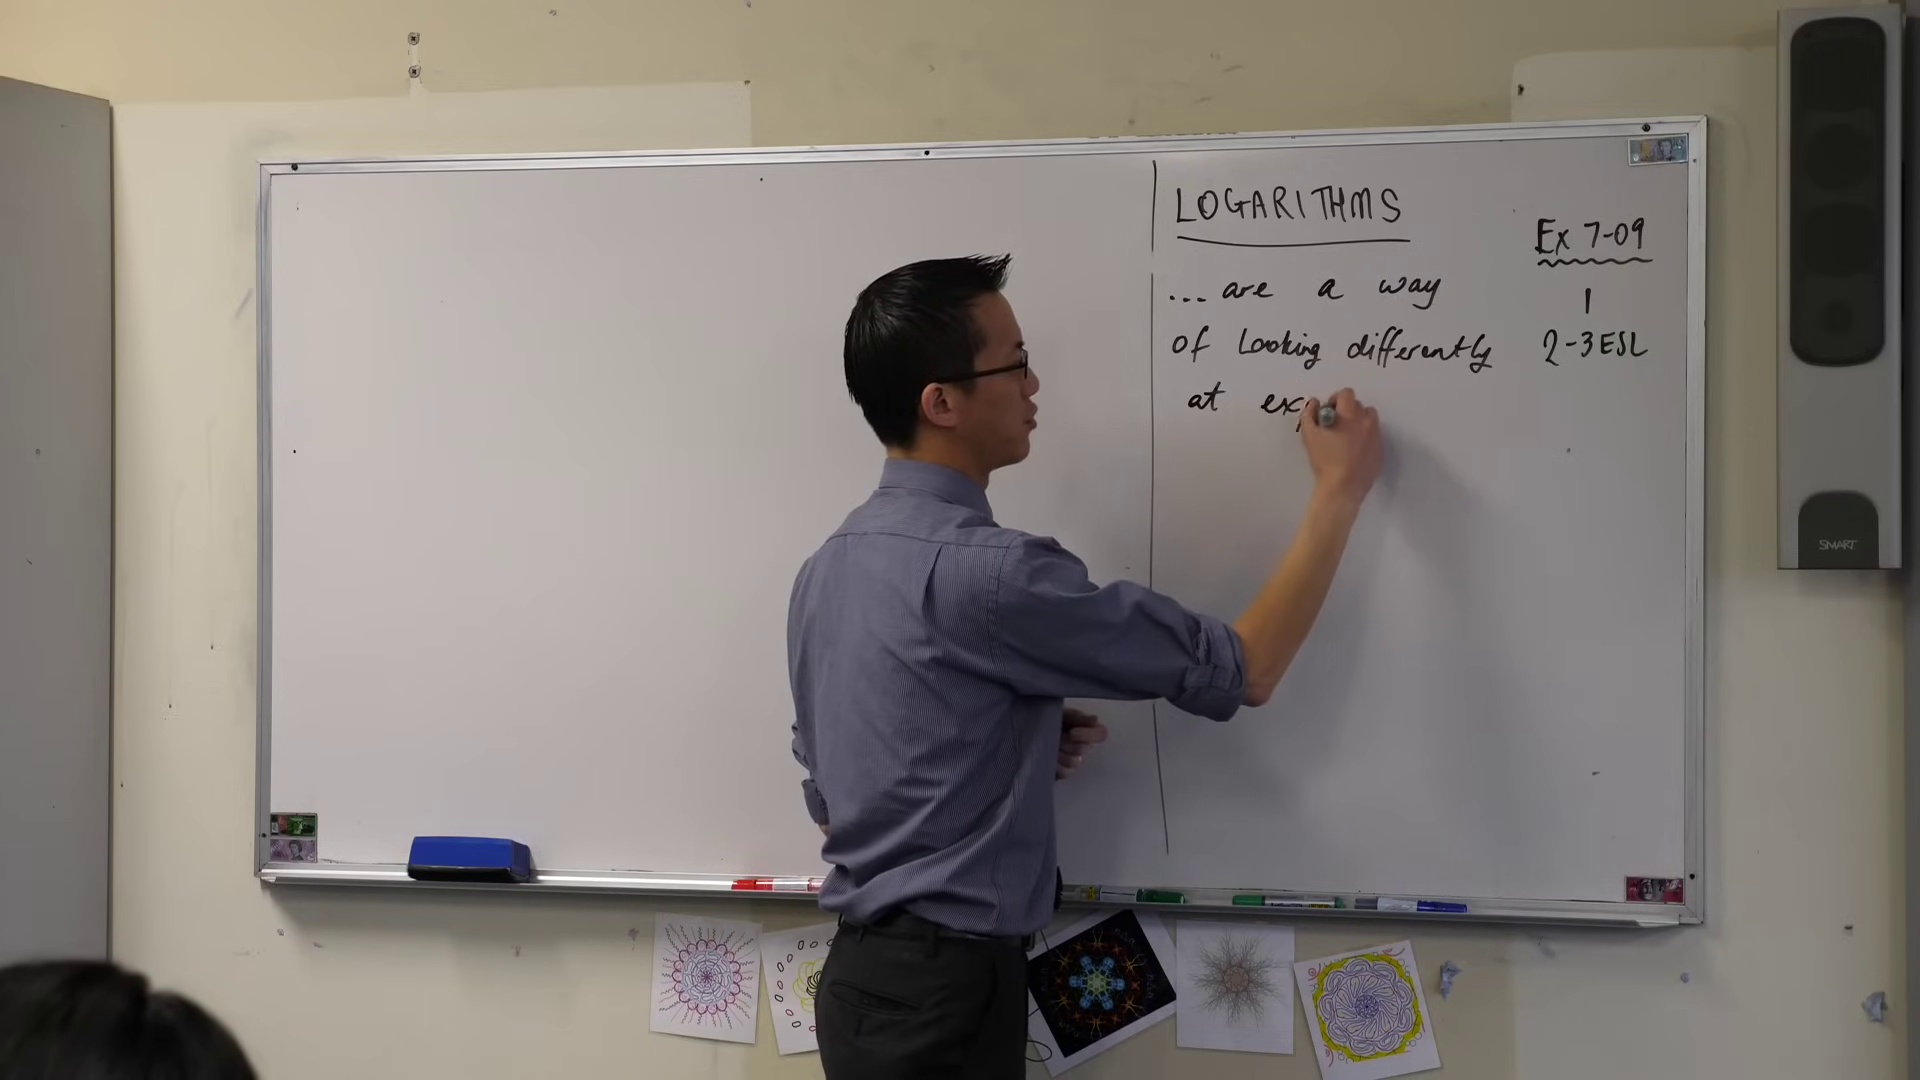 LOGARITHMS
... are a way
of Looking differently
at exp
Ex 7-09
1
2-3ESL
SMART